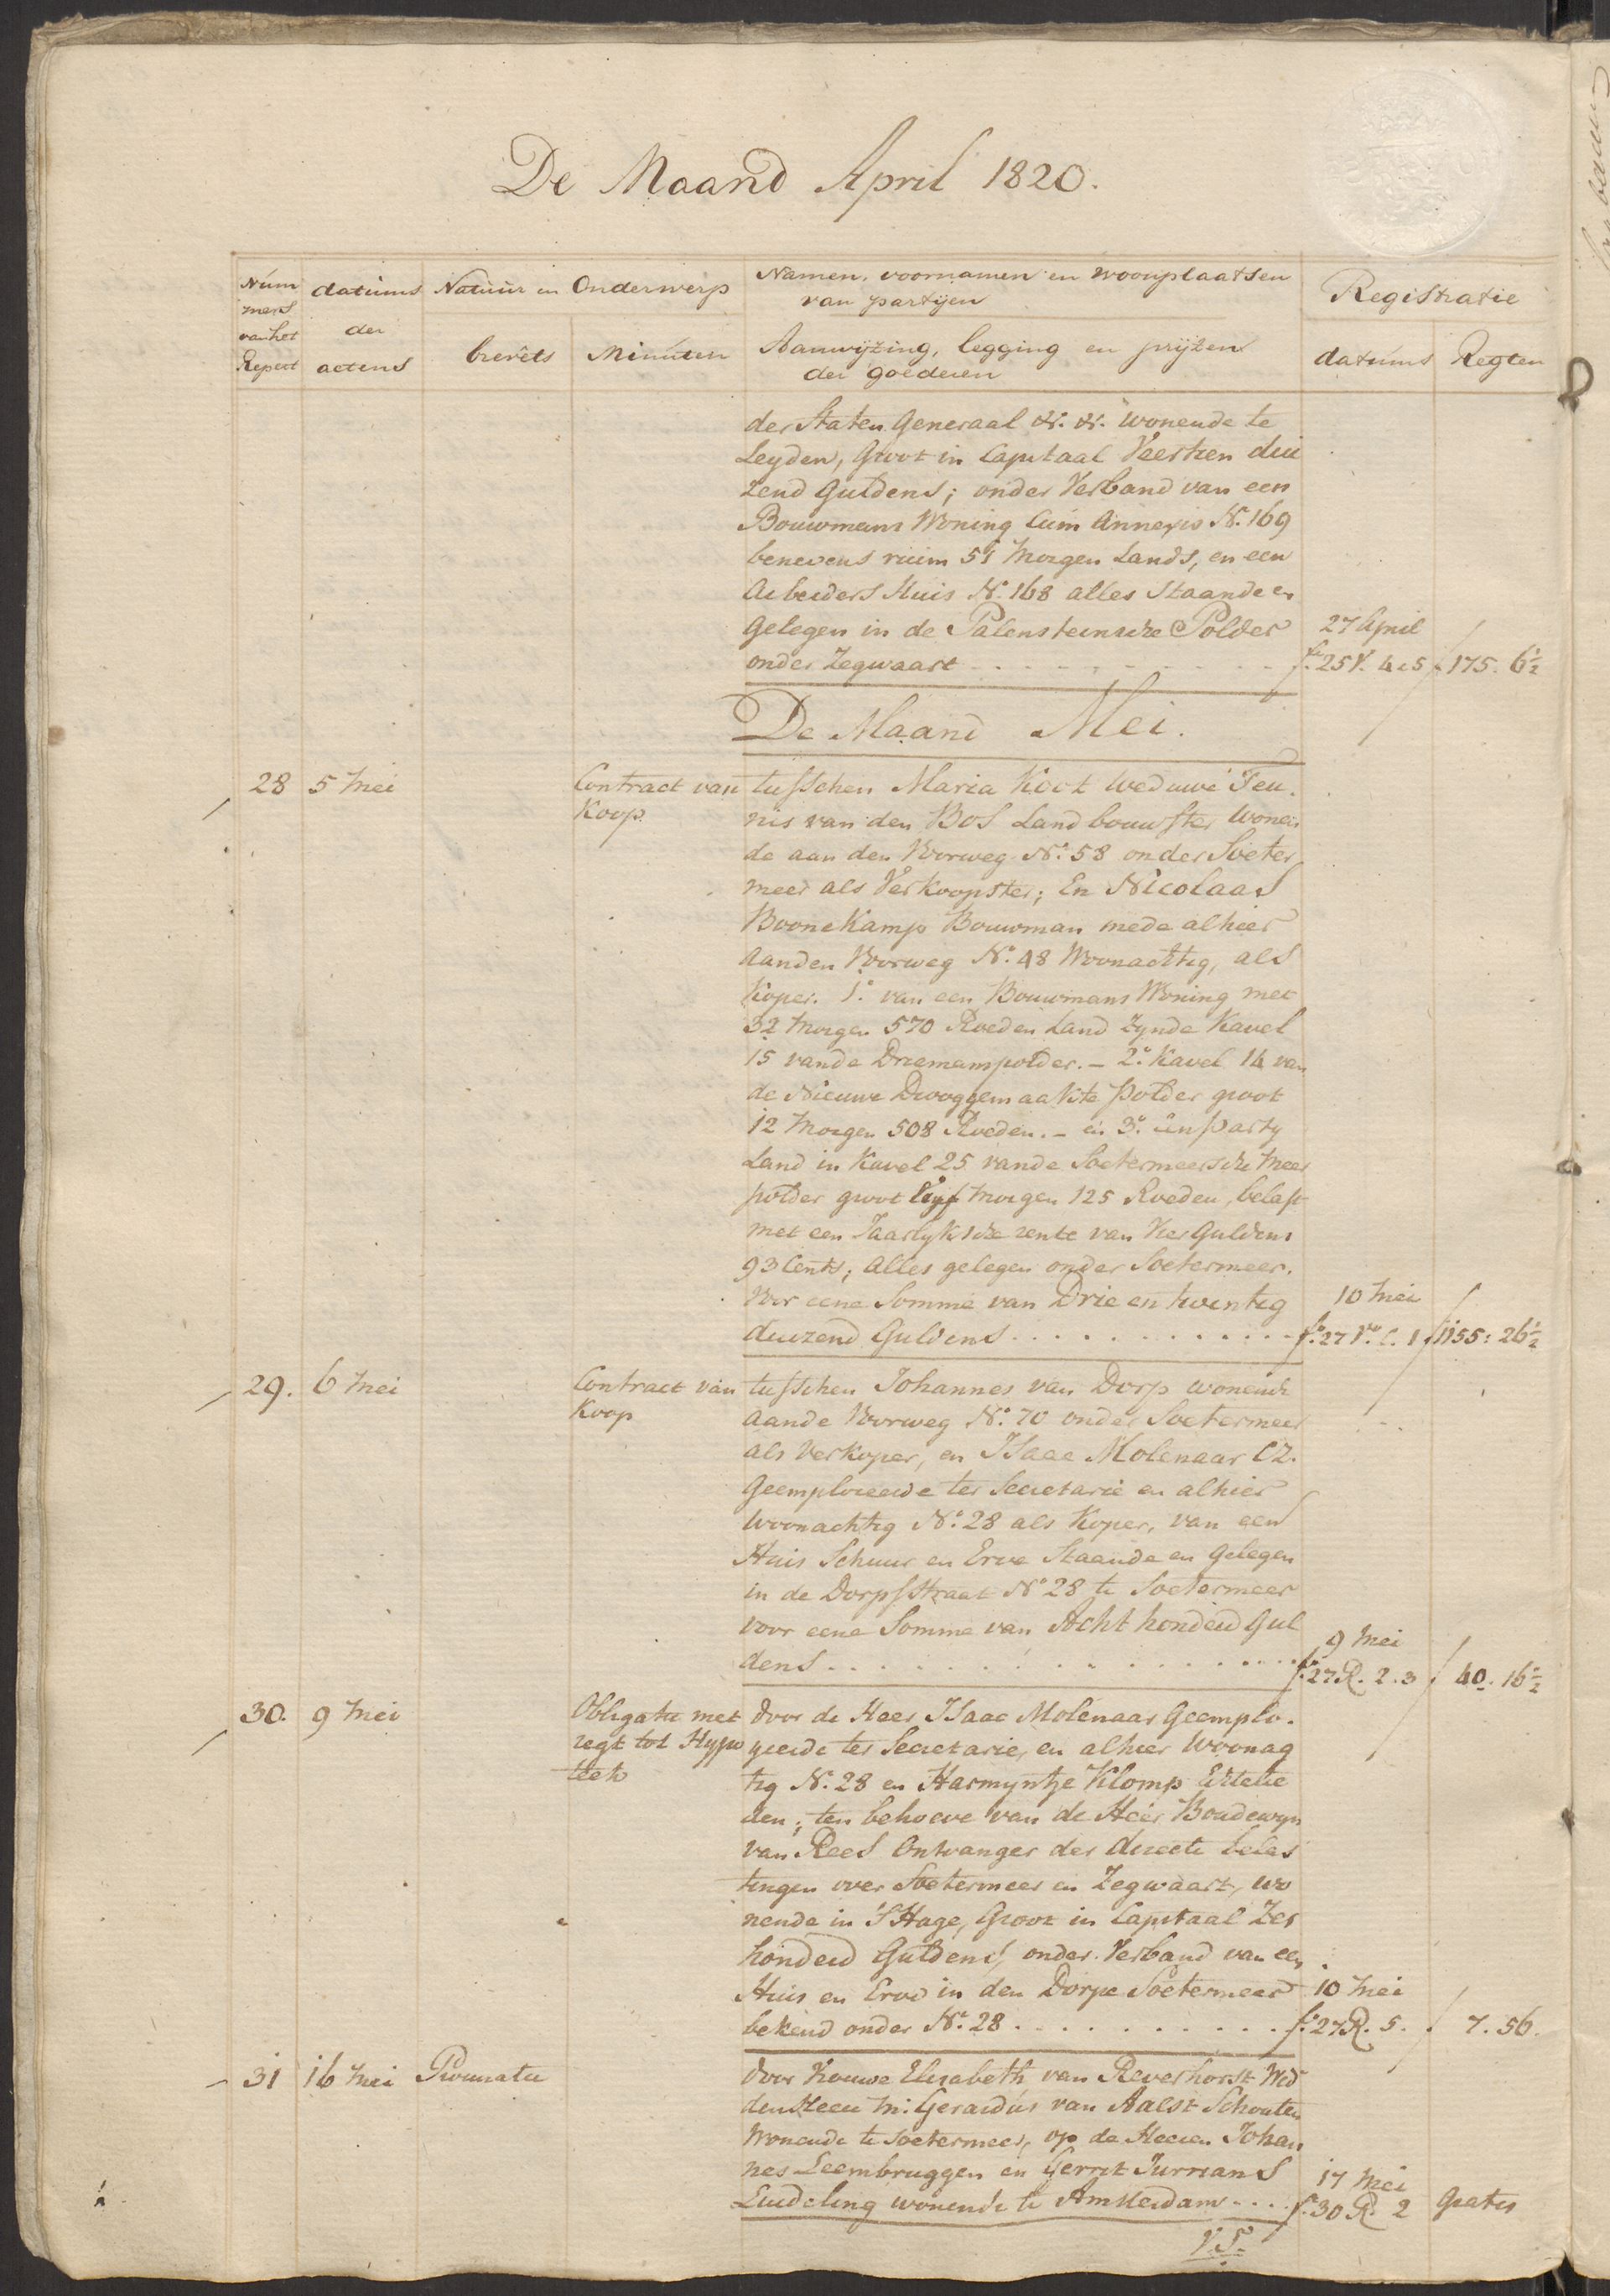 De Maand April 1820.
Num
mers
van het
Repert
datums
der
actens
Natuur en Onderwerp
brevêts
Minuten
Namen, voornamen en woonplaatsen
van partijen
Aanwijzing, legging en prijzen
der goederen
Registratie
datums
Regten
der Staten Generaal &c. &c. wonende te
Leyden, Groot in Capitaal Veertien dui
zend Guldens; onder Verband van een
Bouwmans Woning Cum Annexis No. 169
benevens ruim 51 Morgen Lands, en een
Arbeiders Huis No. 168 alles Staande en
Gelegen in de Palensteinsche Polder
onder Zegwaart
27 April
fo. 25 V. 4 . 5
175. 6½
De Maand Mei.
28 5 Mei
Contract van
Koop
tusschen Maria Koot Weduwe Teu.
nis van den Bos Landbouwster Wonen
de aan den Voorweg No. 58 onder Soeter
meer als Verkoopster; En Nicolaas
Boonekamp Bouwman mede alhier
aanden Voorweg No. 48 Woonachtig, als
Koper. 1o. van een Bouwmans Woning met
32 Morgen 570 Roeden Land zynde Kavel
15 vande Driemanspolder. - 2o. Kavel 14 van
de Nieuwe Drooggemaakte Polder groot
12 Morgen 508 Roeden. - en 3o. een party
Land in Kavel 25 vande Soetermeersche Meer
polder groot Vijf Morgen 125 Roeden, belast
met een Jaarlyksche rente van Vier Guldens
93 Cents; alles gelegen onder Soetermeer.
Voor eene Somme van Drie en twintig
duizend Guldens
10 Mei
fo. 27 Vo. C. 1
1155: 26½
29. 6 Mei
Contract van
Koop
tusschen Johannes van Dorp wonende
aande Voorweg No. 70 onder Soetermeer
als Verkoper, en Isaac Molenaar CZ.
Geemploieerde ter Secretarie en alhier
woonachtig No. 28 als Koper, van een
Huis Schuur en Erve Staande en Gelegen
in de Dorpsstraat No 28 te Soetermeer
voor eene Somme van Acht honderd Gul
dens
9 Mei
fo. 27 R. 2 . 3
40. 16½
30. 9 Mei
Obligatie met
regt tot Hypo
teek
door de Heer Isaac Molenaar Geemplo.
yeerde ter Secretarie, en alhier Woonag
tig No. 28 en Harmyntje Klomp Echtelie
den; ten behoeve van de Heer Boudewyn
van Rees Ontvanger der directe belas
tingen over Soetermeer en Zegwaart, wo
nende in 'S Hage, Groot in Capitaal Zes
honderd Guldens, onder Verband van een
Huis en Erve in den Dorpe Soetermeer
bekend onder No. 28
10 Mei
fo. 27 R. 5.
7. 56.
31 16 Mei Procuratie
door Vrouwe Elisabeth van Reverhorst Wed
den Heer Mr. Gerardus van Aalst Schouten
Wonende te Soetermeer, op de Heeren Johan
nes Leembruggen en Gerrit Jurriaans
Luideling wonende te Amsterdam
17 Mei
fo. 30 R. 2
Gratis
V.S.